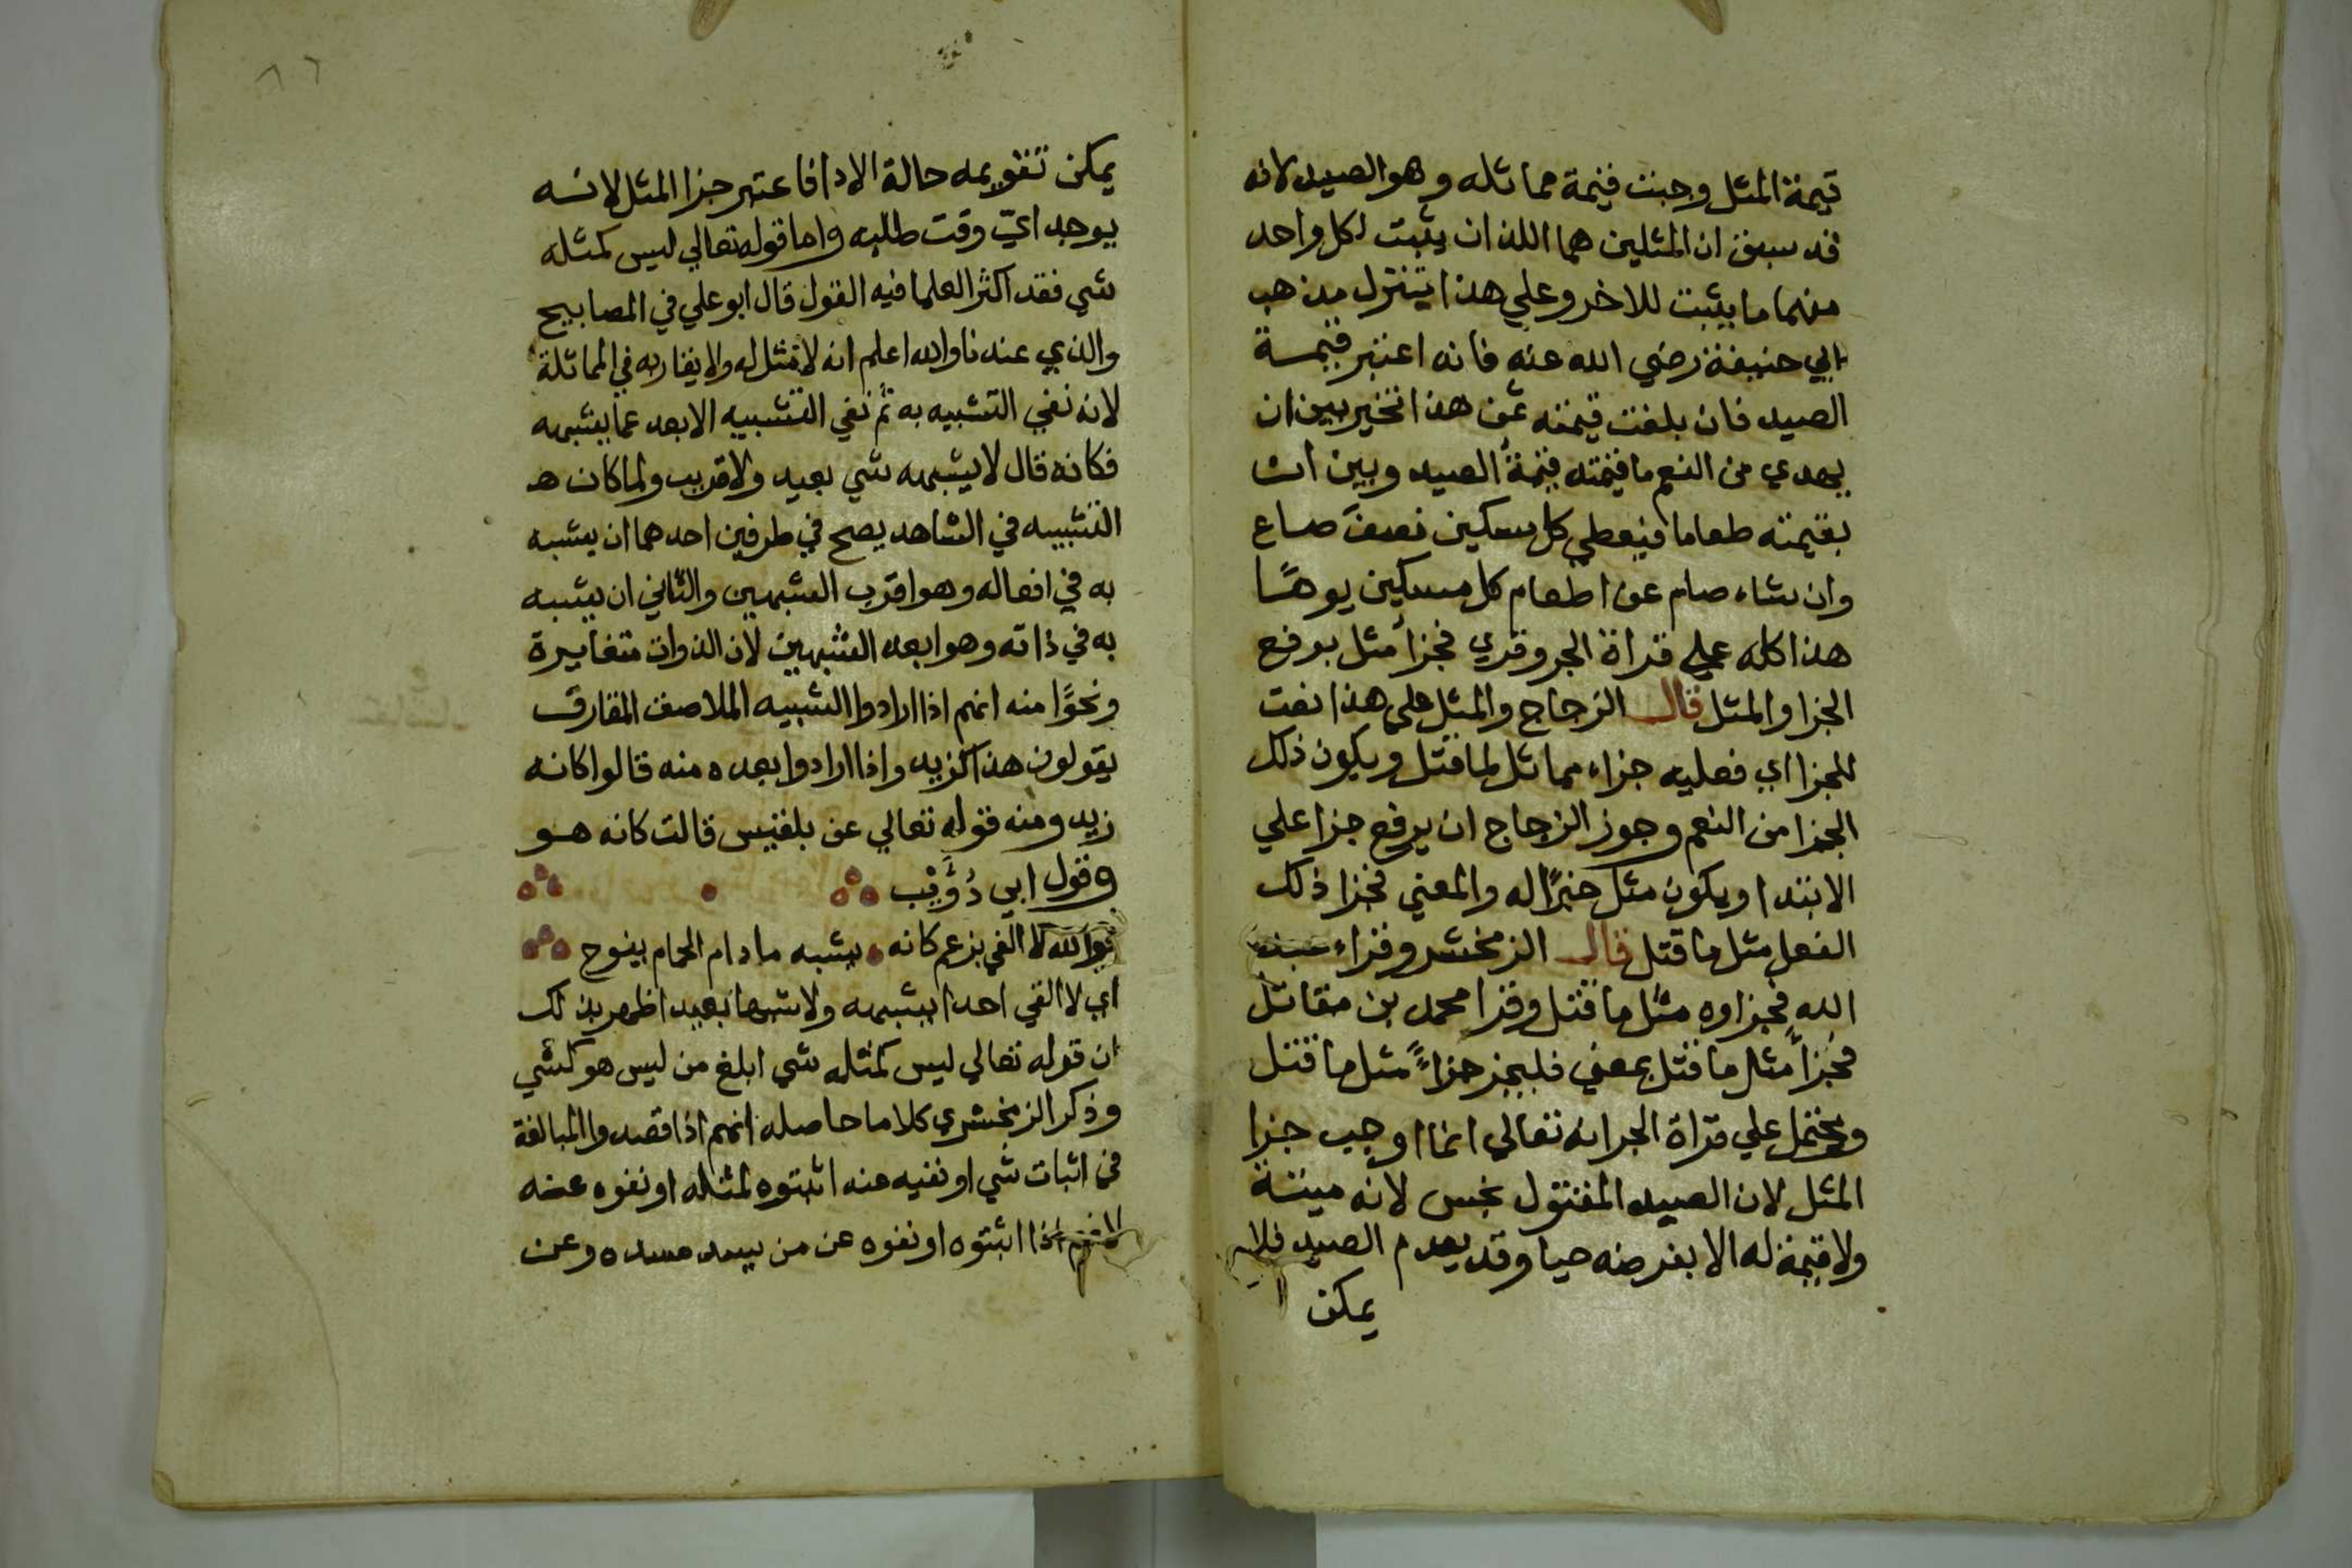 قيمة المثل وجبت قيمة مماثله وهو الصيد لانه
قد سبق ان المثلين هما اللذان يثبت لكل واحد
منهما ما يثبت للاخر وعلي هذا يتنزل مذهب
ابي حنيفة رضي الله عنه فانه اعتبر قيمة
الصيد فان بلغت قيمته ثمن هذا تخير بين ان
يهدي من النعم ما قيمته قيمة الصيد وبين ان
بقيمته طعاما فيعطي كل مسكين نصف صاع
وان شاء صام عن اطعام كل مسكين يومًا
هذا كله علي قراة الجر وقري فجزأ مثل برفع
الجزا والمثل قال الزجاج والمثل علي هذا نعت
للجزا اي فعليه جزاء مماثل لما قتل ويكون ذلك
الجزا من النعم وجوز الزجاج ان يرفع جزا علي
الابتدا ويكون مثل خبرًا له والمعني فجزا ذلك
الفعل مثل ما قتل قال الزمخشر وقراء عبد
الله فجزاوه مثل ما قتل وقرا محمد بن مقاتل
فجزأ مثل ما قتل بمعني فليجز جزاءً مثل ما قتل
ويحتمل علي قراة الجر انه تعالي انما اوجب جزا
المثل لان الصيد المقتول نجس لانه ميتة
ولا قيمة له الا بفرضه حيا وقد يعدم الصيد فلا
يمكن
٨٦
يمكن تقويمه حالة الادا فاعتبر جزا المثل لانه
يوجد ايّ وقت طلبه واما قوله تعالي ليس كمثله
شي فقد اكثر العلما فيه القول قال ابو علي في المصابيح
والذي عندنا والله اعلم انه لا مثل له ولا يقاربه في المماثلة
لانه نفي التشبيه به ثم نفي التشبيه الابعد عما يشبهه
فكانه قال لا يشبهه شي بعيد ولا قريب ولما كان هـ
التشبيه في الشاهد يصح في طرفين احدهما ان يشبه
به في افعاله وهو اقرب الشبهين والثاني ان يشبه
به في ذاته وهو ابعد الشبهين لان الذوات متغايرة
ونحوًا منه انهم اذا ارادوا التشبيه الملاصق المقارف
يقولون هذا كزيد واذا ارادوا بعده منه قالوا كانه
زيد ومنه قوله تعالي عن بلقيس قالت كانه هو
وقول ابي ذؤيب
فوالله لا القي بزعم كانه يشبه ما دام الحمام ينوح
اي لا القي احدا يشبهه ولا شبها بعيدا ظهر بذلك
ان قوله تعالي ليس كمثله شي ابلغ من ليس هو كشي
وذكر الزمخشري كلاما حاصله انهم اذا قصدوا المبالغة
في اثبات شي او نفيه عنه اثبتوه لمثله او نفوه عنه
لانهم اذا اثبتوه او نفوه عن من يسد مسده وعن